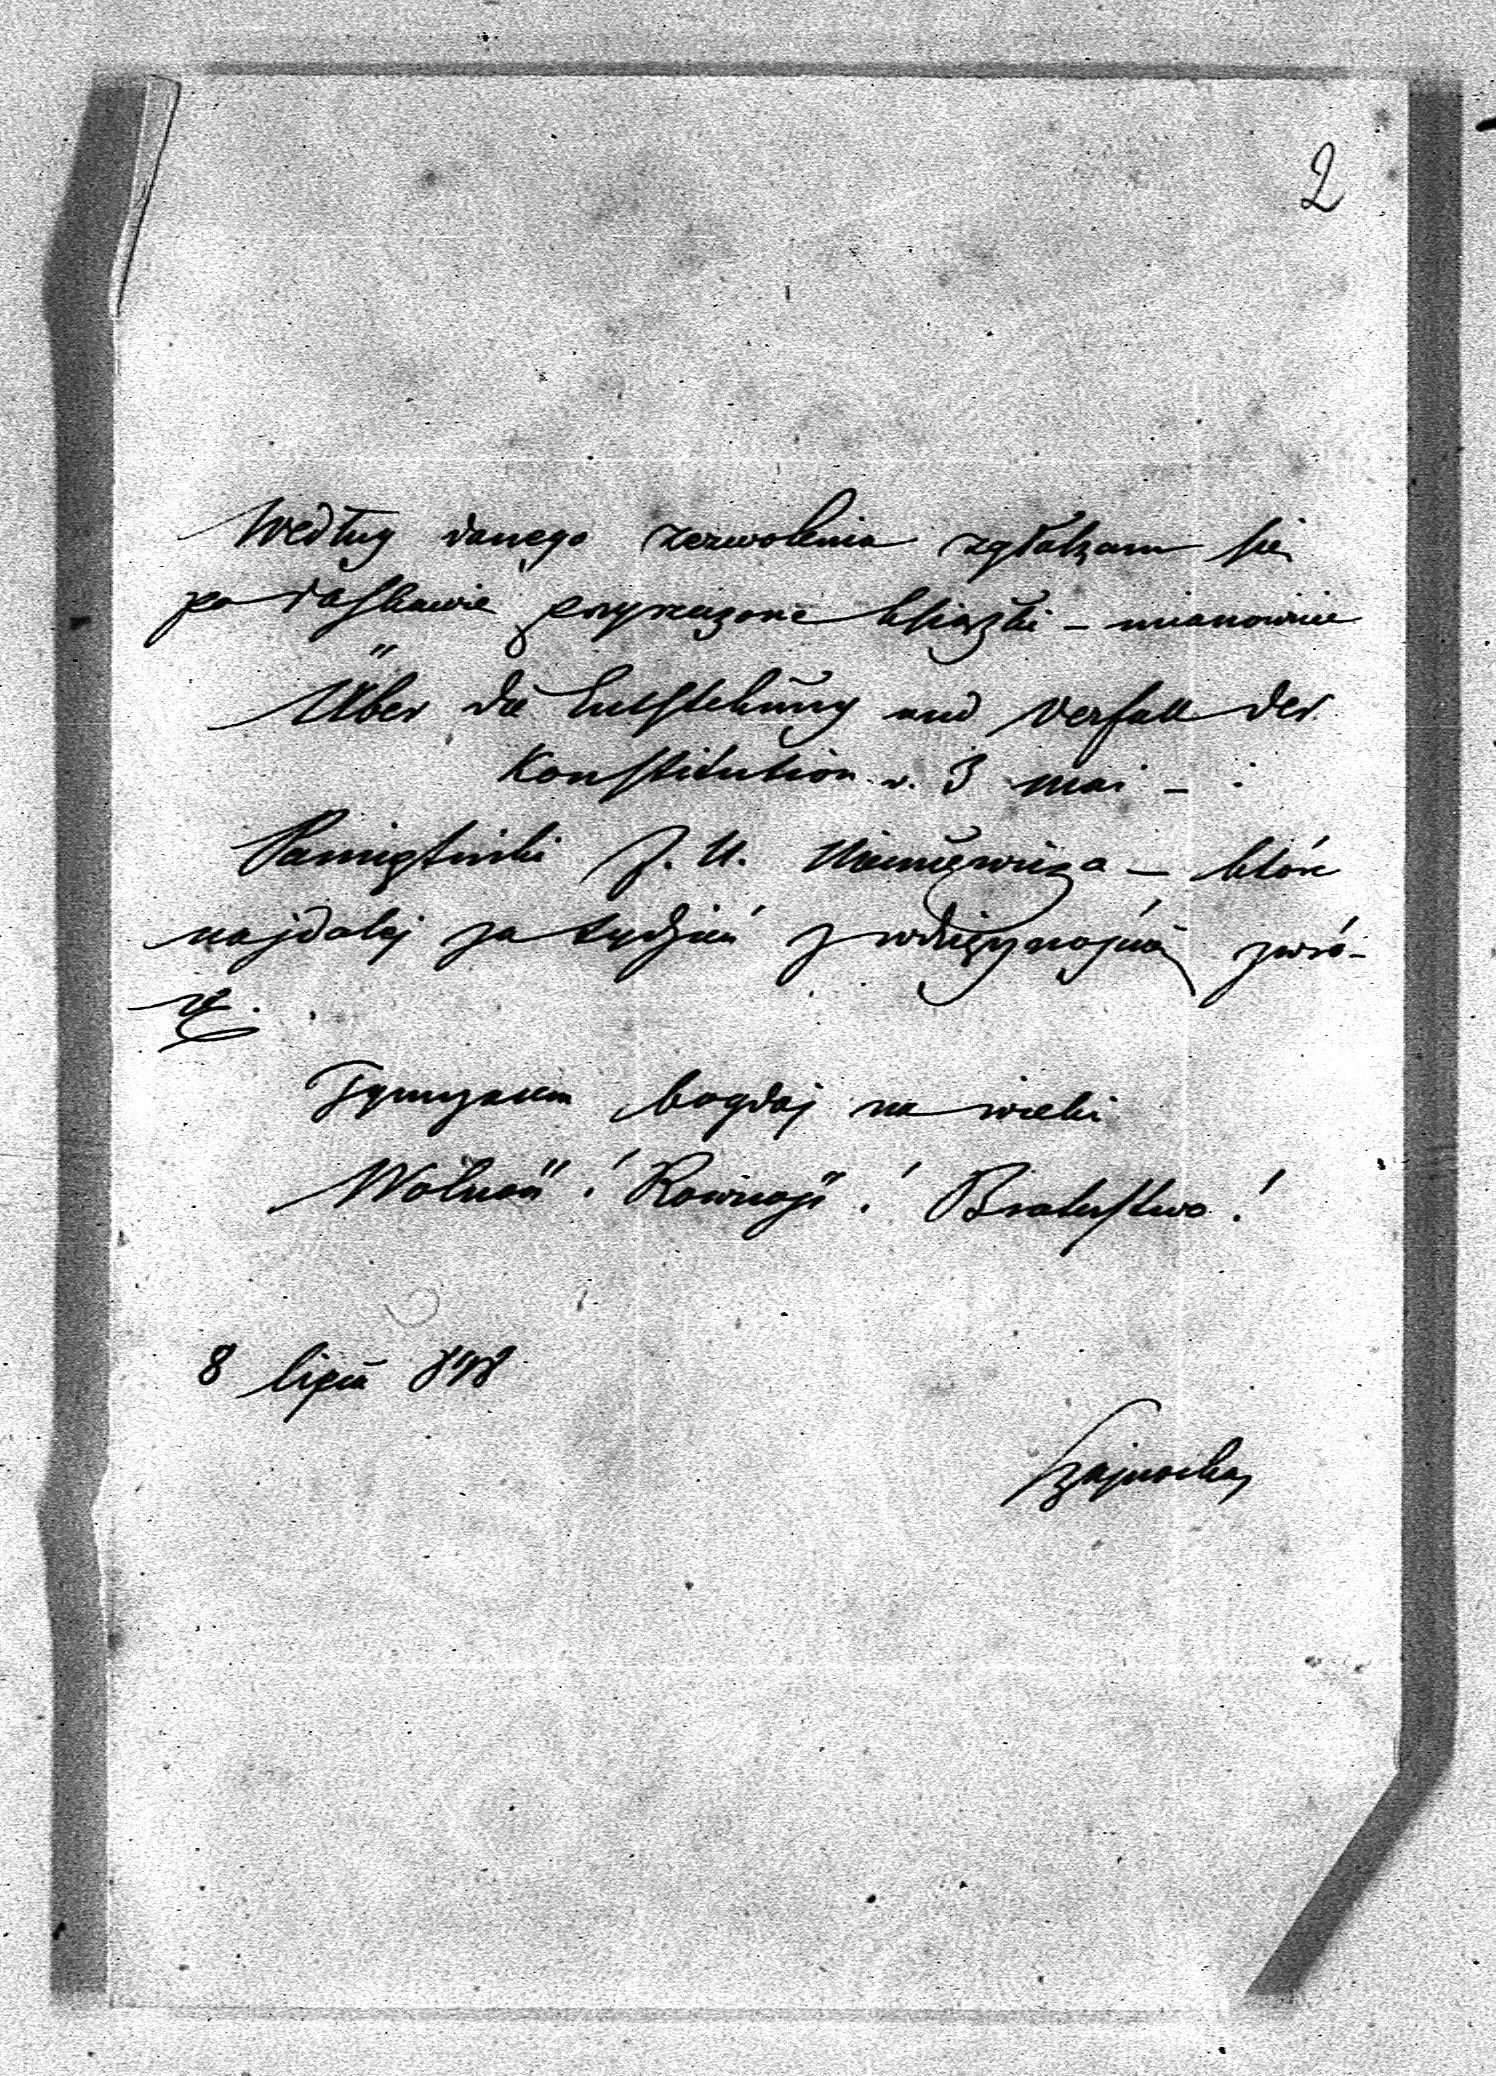 2
Według danego zezwolenia zgłaszam się
po łaskawie przyrzeczone książki – mianowicie
Über die Entstehung und Verfall der
Konstitution v. 3 Mai –
Pamiętniki J. U. Niemcewicza – które
najdalej za tydzień z wdzięcznością zwró-
cę.
Tymczasem bogdaj na wieki
Wolność! Równość! Braterstwo!
8 lipca 848
Szajnocha